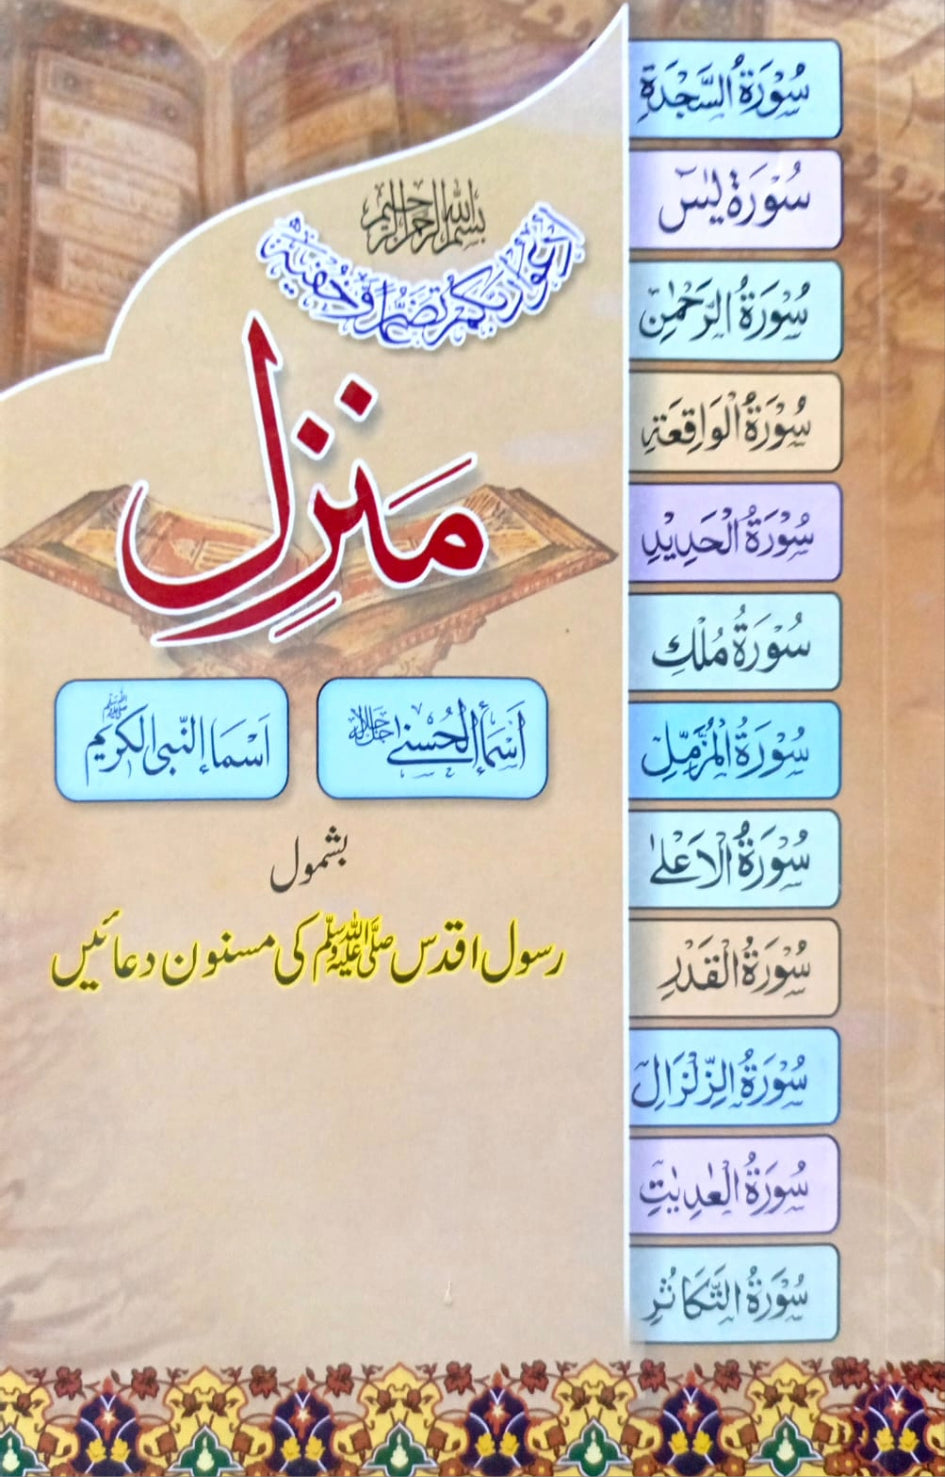 بسم الله الرحمن الرحيم
اُدْعُوْا رَبَّكُمْ تَضَرُّعًا وَّخُفْيَةً
مَنزِل
اَسمَاُالحُسنٰے جل جلالہ
اَسمَاالنّبی الکریم ﷺ
بشمول
رسول اقدس ﷺ کی مسنون دعائیں
سُوْرَۃُ السَّجْدَۃِ
سُوْرَۃُ یٰسٓ
سُوْرَۃُ الرَّحْمٰنِ
سُوْرَۃُ الْوَاقِعَۃِ
سُوْرَۃُ الْحَدِیْدِ
سُوْرَۃُ مُلْكِ
سُوْرَۃُ الْمُزَّمِّلِ
سُوْرَۃُ الْاَعْلٰی
سُوْرَۃُ الْقَدْرِ
سُوْرَۃُ الزِّلْزَال
سُوْرَۃُ الْعٰدِیٰتِ
سُوْرَۃُ التَّکَاثُرِ